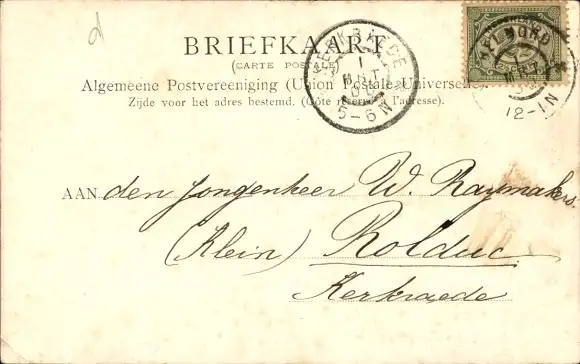 d
BRIEFKAART
(CARTE POSTALE)
Algemeene Postvereeniging (Union Postale Universelle).
Zijde voor het adres bestemd. (Côté réservé à l'adresse).
KERKRADE
1
MRT
5-6N
HELMOND
MRT
12-1N
AAN den Jongenheer W. Raymakers.
(Klein) Rolduc
Kerkraede